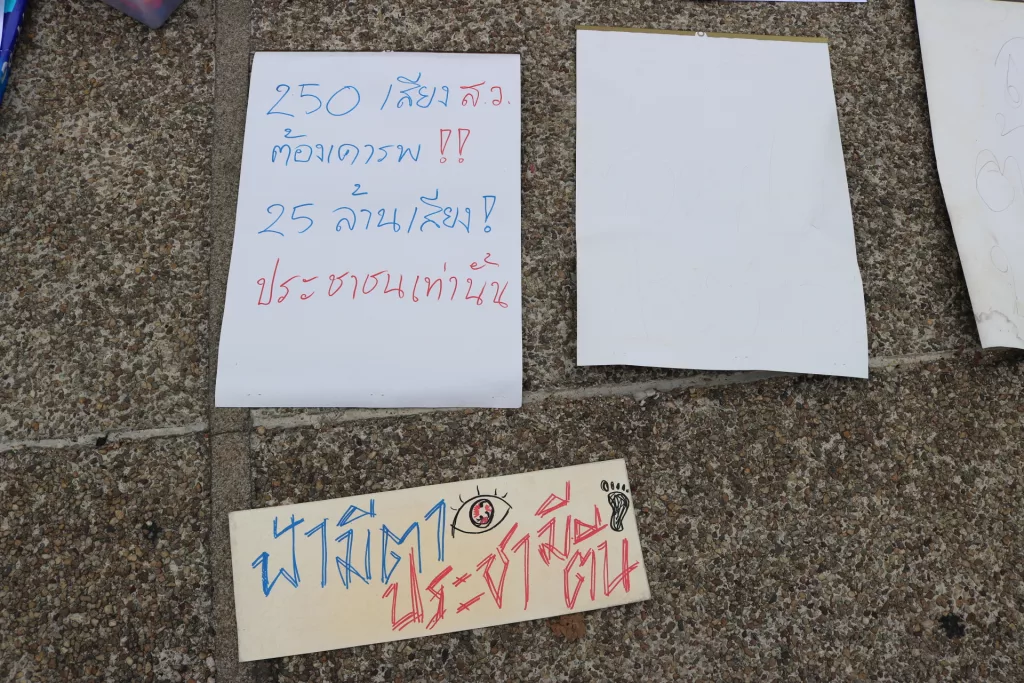 250 เสียง ส.ว.
ต้องเคารพ !!
25 ล้านเสียง!
ประชาชนเท่านั้น
ฟ้ามีตา
ประชามีตีน